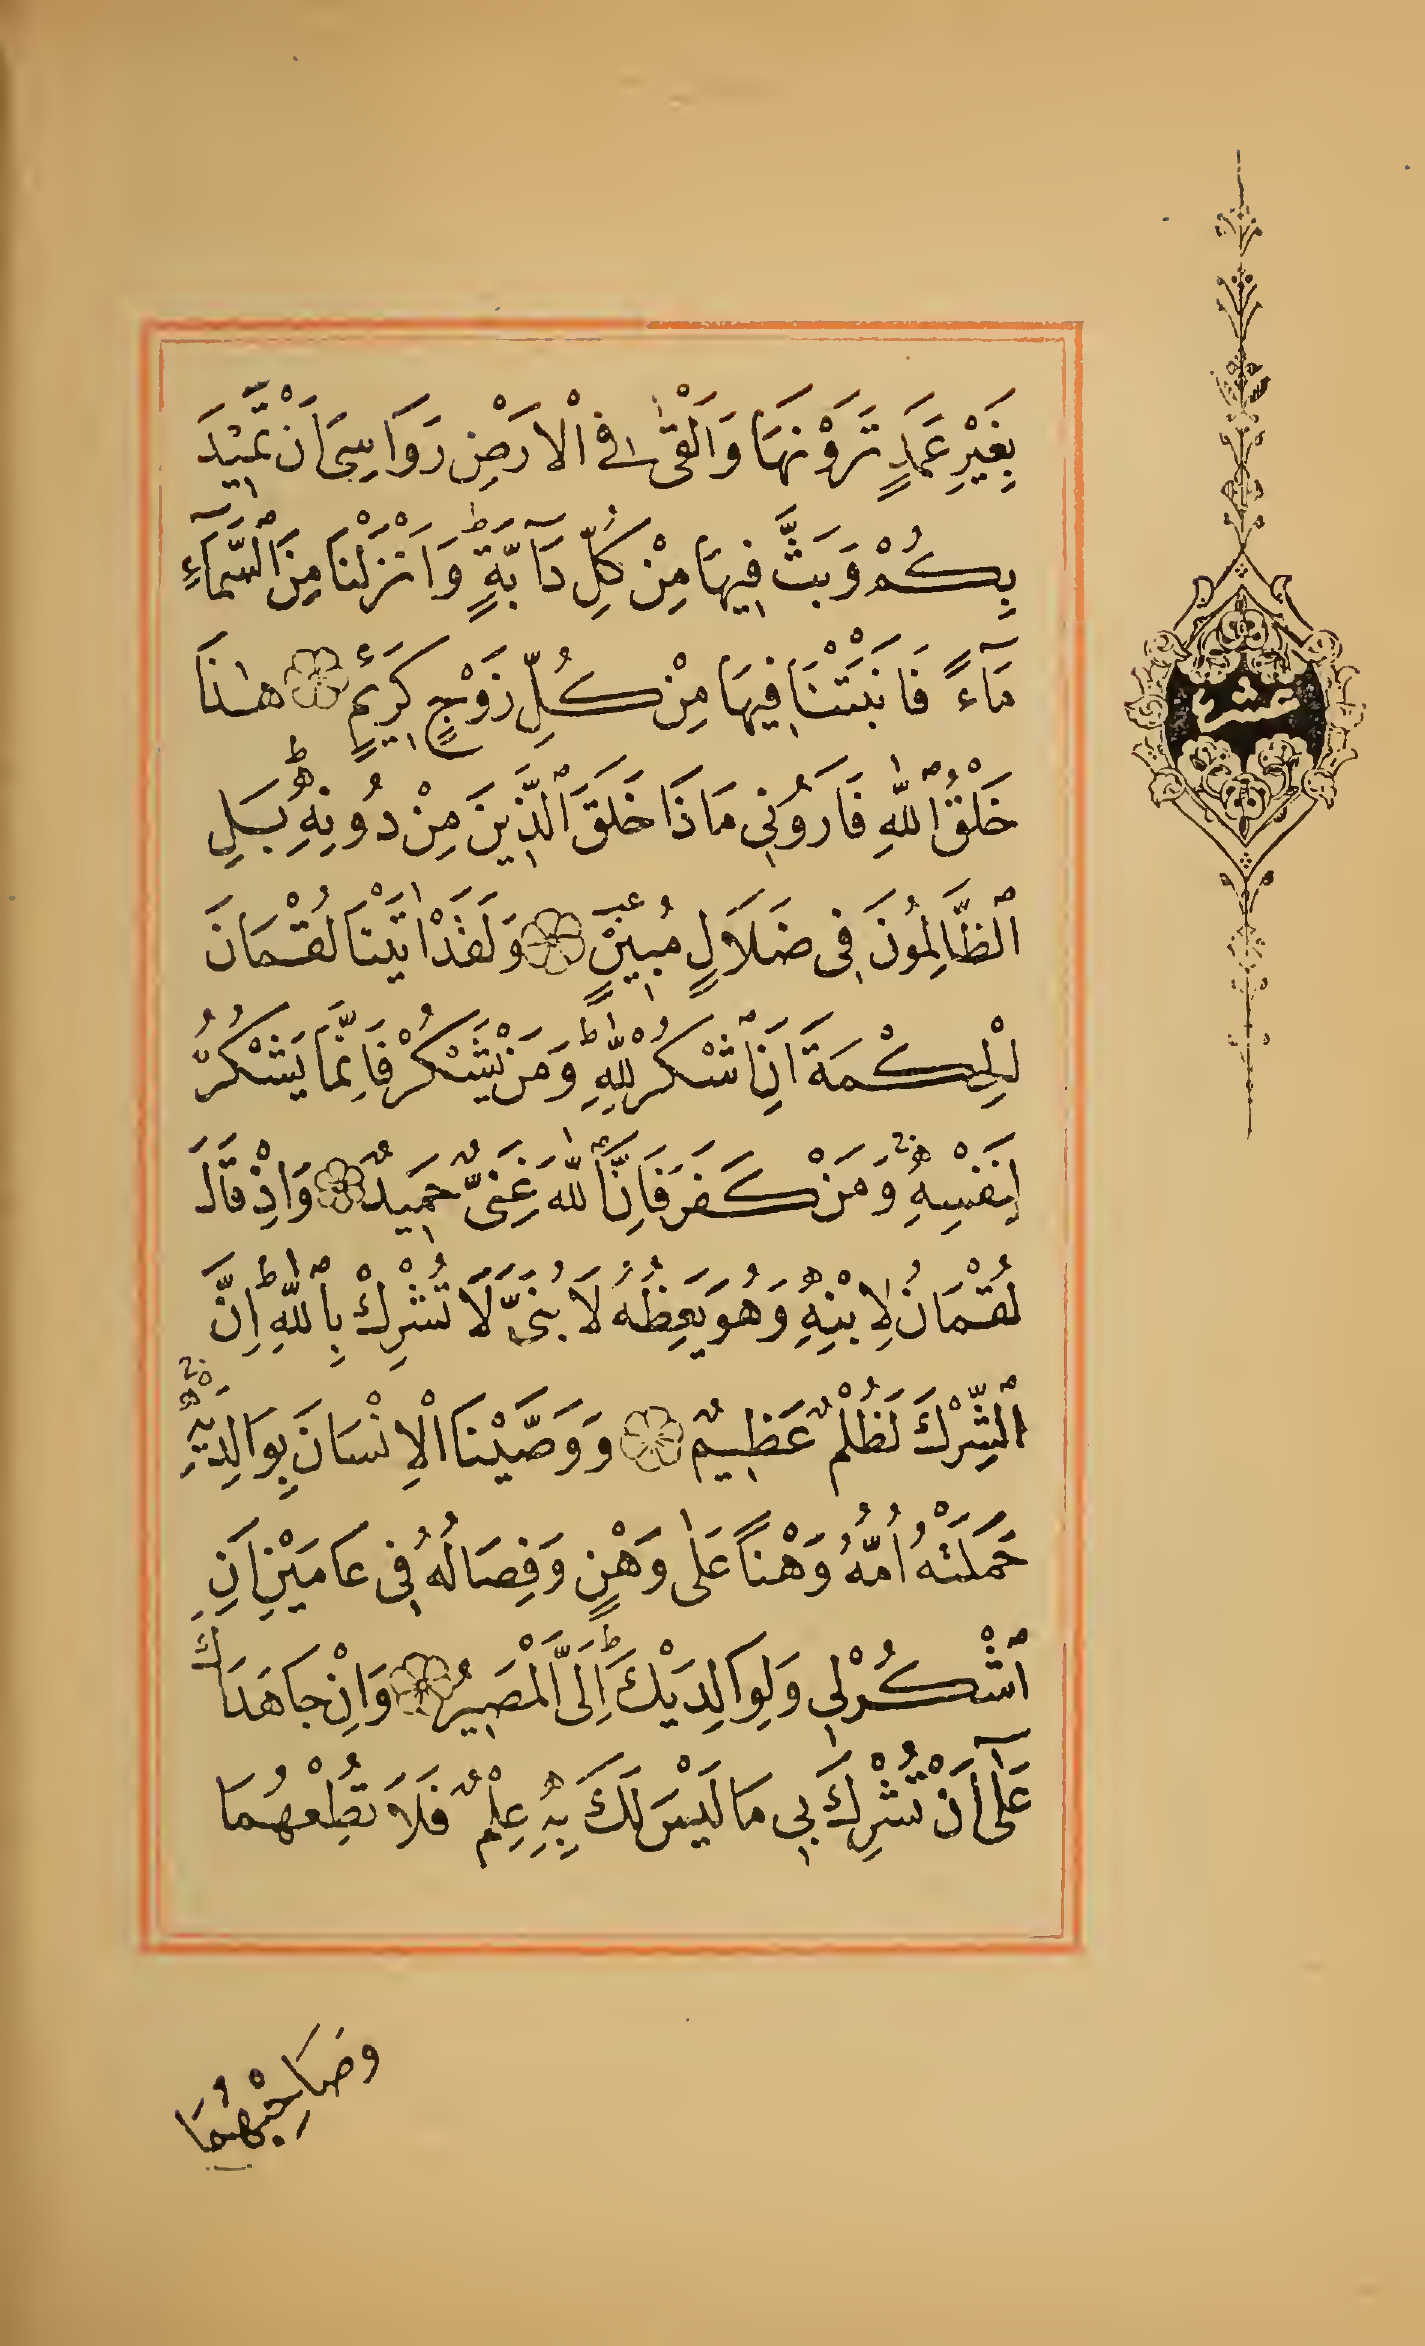 بِغَيْرِ عَمَدٍ تَرَوْنَهَا وَاَلْقٰى فِى الْاَرْضِ رَوَاسِىَ اَنْ تَمِيْدَ
بِكُمْ وَبَثَّ فِيهَا مِنْ كُلِّ دَآبَّةٍ ط وَاَنْزَلْنَا مِنَ ٱلسَّمَآءِ
مَآءً فَاَنْبَتْنَا فِيهَا مِنْ كُلِّ زَوْجٍ كَرِيمٍ هٰذَا
خَلْقُ ٱللّٰهِ فَاَرُونِى مَاذَا خَلَقَ ٱلَّذِينَ مِنْ دُونِهِ ط بَلِ
ٱلظَّالِمُونَ فِى ضَلَالٍ مُبِينٍ ع وَلَقَدْ اٰتَيْنَا لُقْمَانَ
الْحِكْمَةَ اَنِ ٱشْكُرْ لِلّٰهِ ط وَمَنْ يَشْكُرْ فَاِنَّمَا يَشْكُرُ
لِنَفْسِهِ ج وَمَنْ كَفَرَ فَاِنَّ ٱللّٰهَ غَنِىٌّ حَمِيدٌ وَاِذْ قَالَ
لُقْمَانُ لِابْنِهِ وَهُوَ يَعِظُهُ لَا بُنَىَّ لَا تُشْرِكْ بِٱللّٰهِ ط اِنَّ
ٱلشِّرْكَ لَظُلْمٌ عَظِيمٌ وَوَصَّيْنَا الْاِنْسَانَ بِوَالِدَيْهِ ج
حَمَلَتْهُ اُمُّهُ وَهْنًا عَلٰى وَهْنٍ وَفِصَالُهُ فِى عَامَيْنِ اَنِ
ٱشْكُرْ لِى وَلِوَالِدَيْكَ ط اِلَىَّ الْمَصِيرُ وَاِنْ جَاهَدَاكَ
عَلٰٓى اَنْ تُشْرِكَ بِى مَا لَيْسَ لَكَ بِهِ عِلْمٌ فَلَا تُطِعْهُمَا
وَصَاحِبْهُمَا